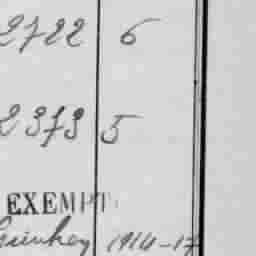 2722 6
2373 5
EXEMPT
1914-17